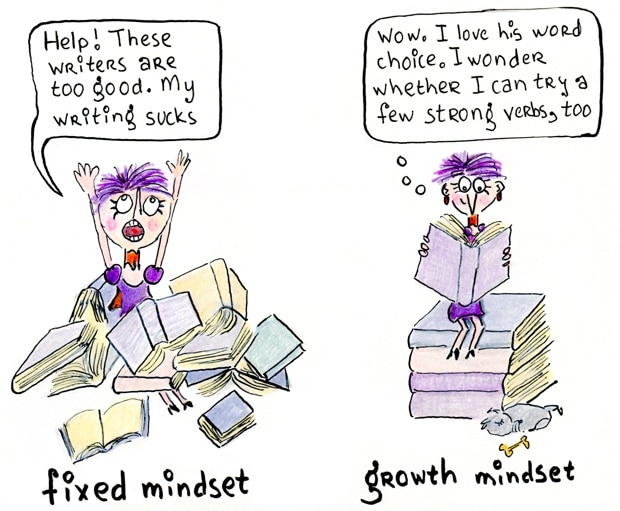 Help! These
writers are
too good. My
writing sucks
wow. I love his word
choice. I wonder
whether I can try a
few strong verbs, too
fixed mindset
growth mindset